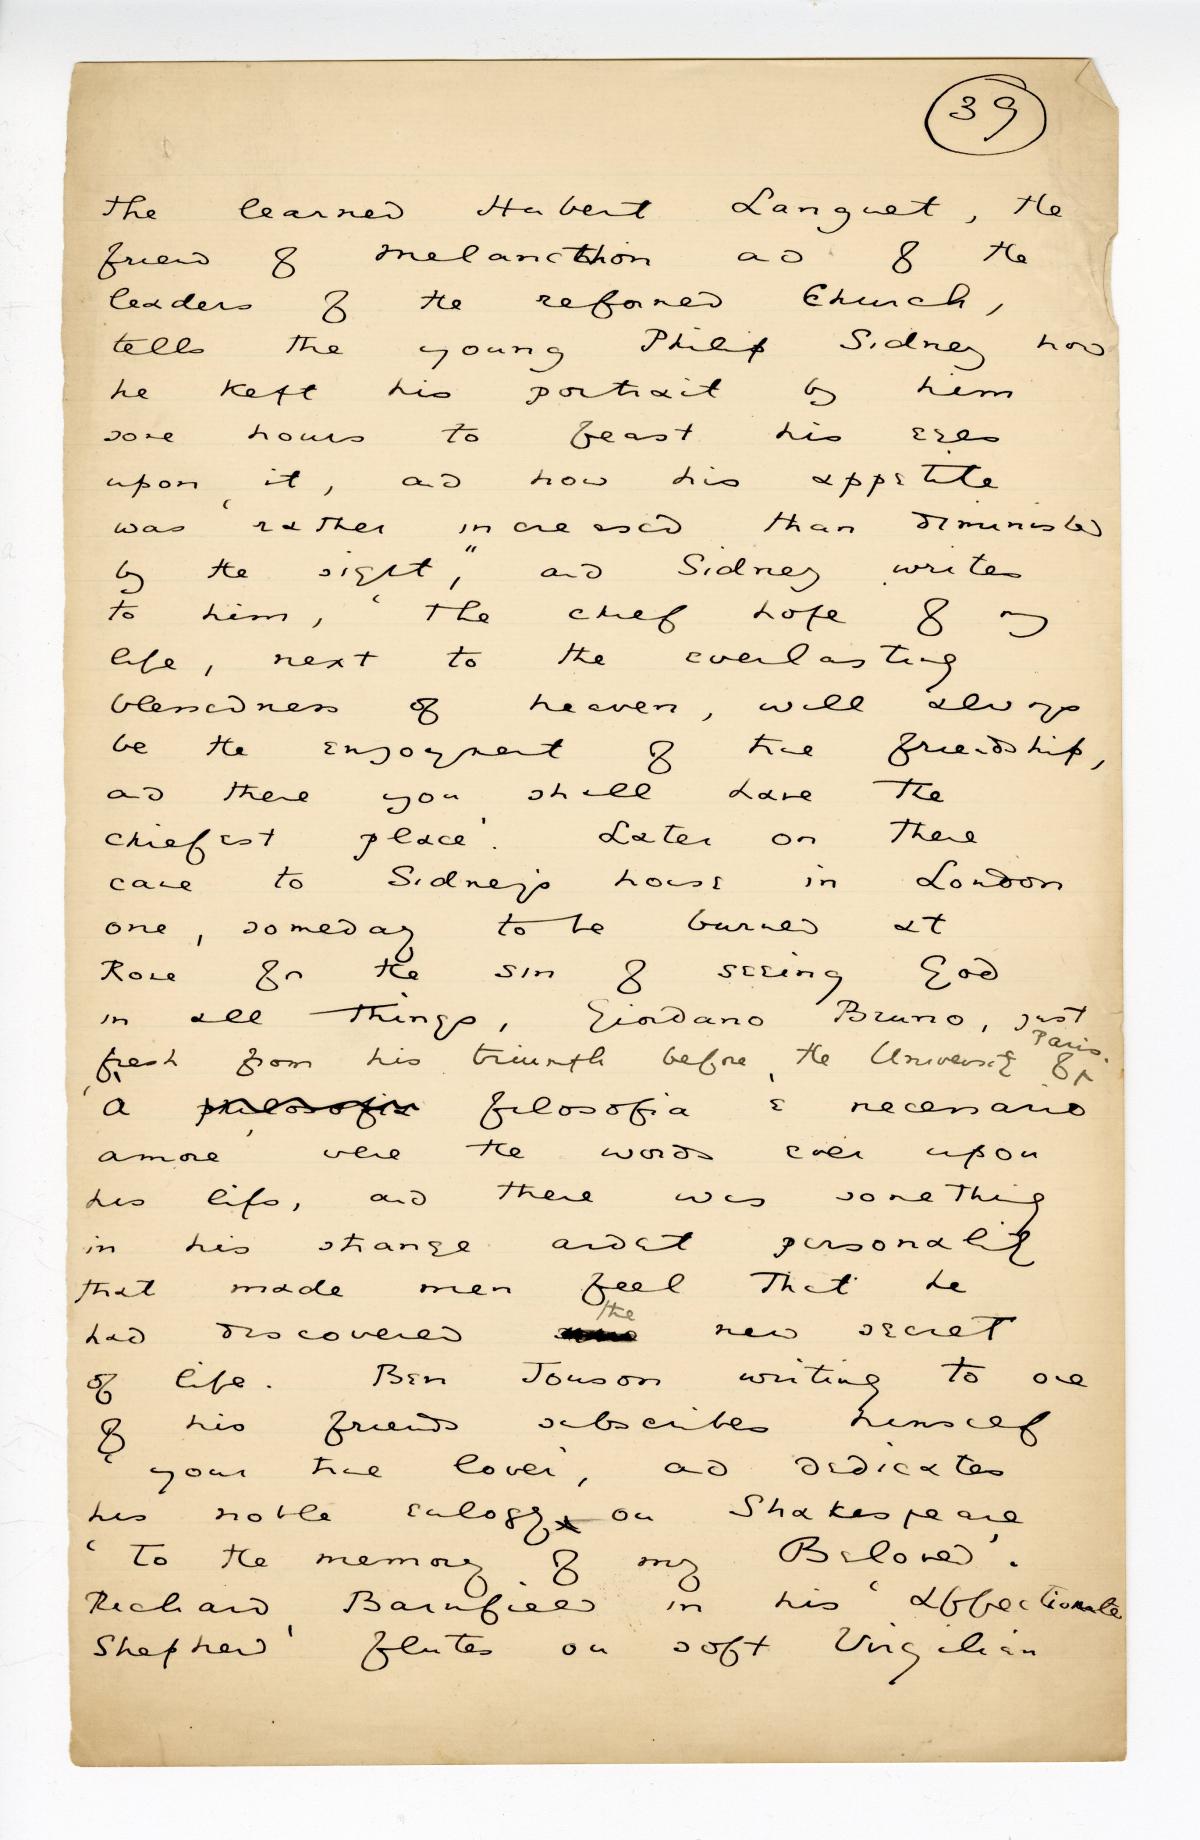 39
the learned Hubert Languet, the
friend of Melancthon and of the
leaders of the reformed Church,
tells the young Philip Sidney how
he kept his portrait by him
some hours to feast his eyes
upon it, and how his appetite
was 'rather increased than diminished
by the sight,” and Sidney writes
to him, 'the chief hope of my
life, next to the everlasting
blessedness of heaven, will always
be the enjoyment of true friendship,
and there you shall have the
chiefest place'. Later on there
came to Sidney's house in London
one, someday to be burned at
Rome for the sin of seeing God
in all things, Giordano Bruno, just
fresh from his triumph before the University of Paris.
'A philosofia filosofia è necessario
amore' were the words ever upon
his lips, and there was something
in his strange ardent personality
that made men feel that he
had discovered the new secret
of life. Ben Jonson writing to one
of his friends subscribes himself
'your true lover', and dedicates
his noble eulogy on Shakespeare
'To the memory of my Beloved'.
Richard Barnfield in his 'Affectionate
Shepherd' flutes on soft Virgilian